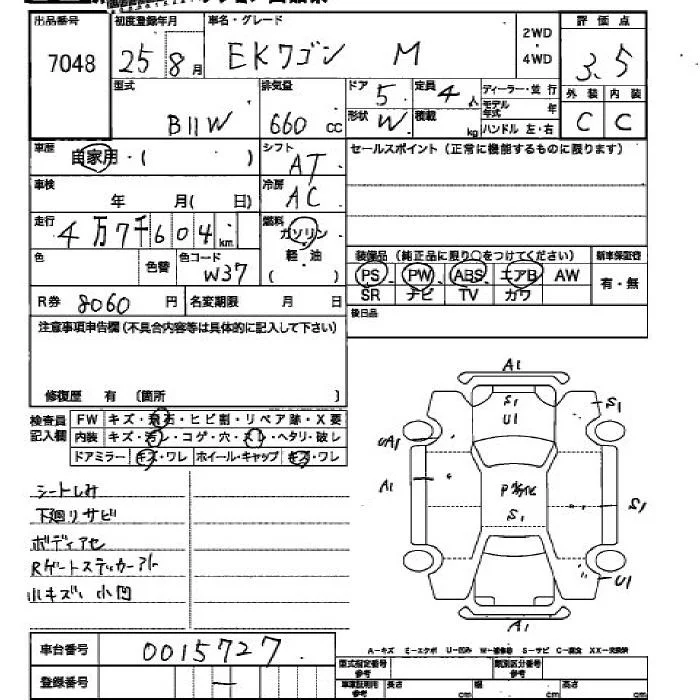 出品番号 初度登録年月 車名・グレード 評価点
7048 25 8月 EKワゴン M 2WD・4WD 3.5
型式 排気量 ドア 定員 ディーラー・並行 外装 内装
B11W 660cc 5 4人 モデル年式 年 C C
形状 W 積載 kg ハンドル 左・右
車歴 自家用・( ) シフト AT セールスポイント(正常に機能するものに限ります)
車検 年 月( 日) 冷房 AC
走行 4万7千604km 燃料 ガソリン 軽・油 ( )
色 色替 色コード W37
装備品(純正品に限り○をつけてください) 新車保証書
PS PW ABS エアB AW 有・無
SR ナビ TV カワ
R券 8060円 名変期限 月 日 後日品
注意事項申告欄(不具合内容等は具体的に記入して下さい)
修復歴 有 〔箇所 〕
検査員記入欄 FW キズ・飛石・ヒビ割・リペア跡・X要
内装 キズ・汚レ・コゲ・穴・スレ・ヘタリ・破レ
ドアミラー キズ・ワレ ホイール・キャップ キズ・ワレ
シートしみ
下廻リサビ
ボディアセ
Rゲートステッカーアト
小キズ 小凹
A1
S1
U1
S1
UA1
A1
P劣化
S1
S1
U1
A1
A-キズ E-エクボ U-凹み W-補修跡 S-サビ C-腐食 XX-交換済
車台番号 0015727
登録番号 ー
型式指定番号 参考 類別区分番号 参考
車車証明用 参考 長さ cm 幅 cm 高さ cm